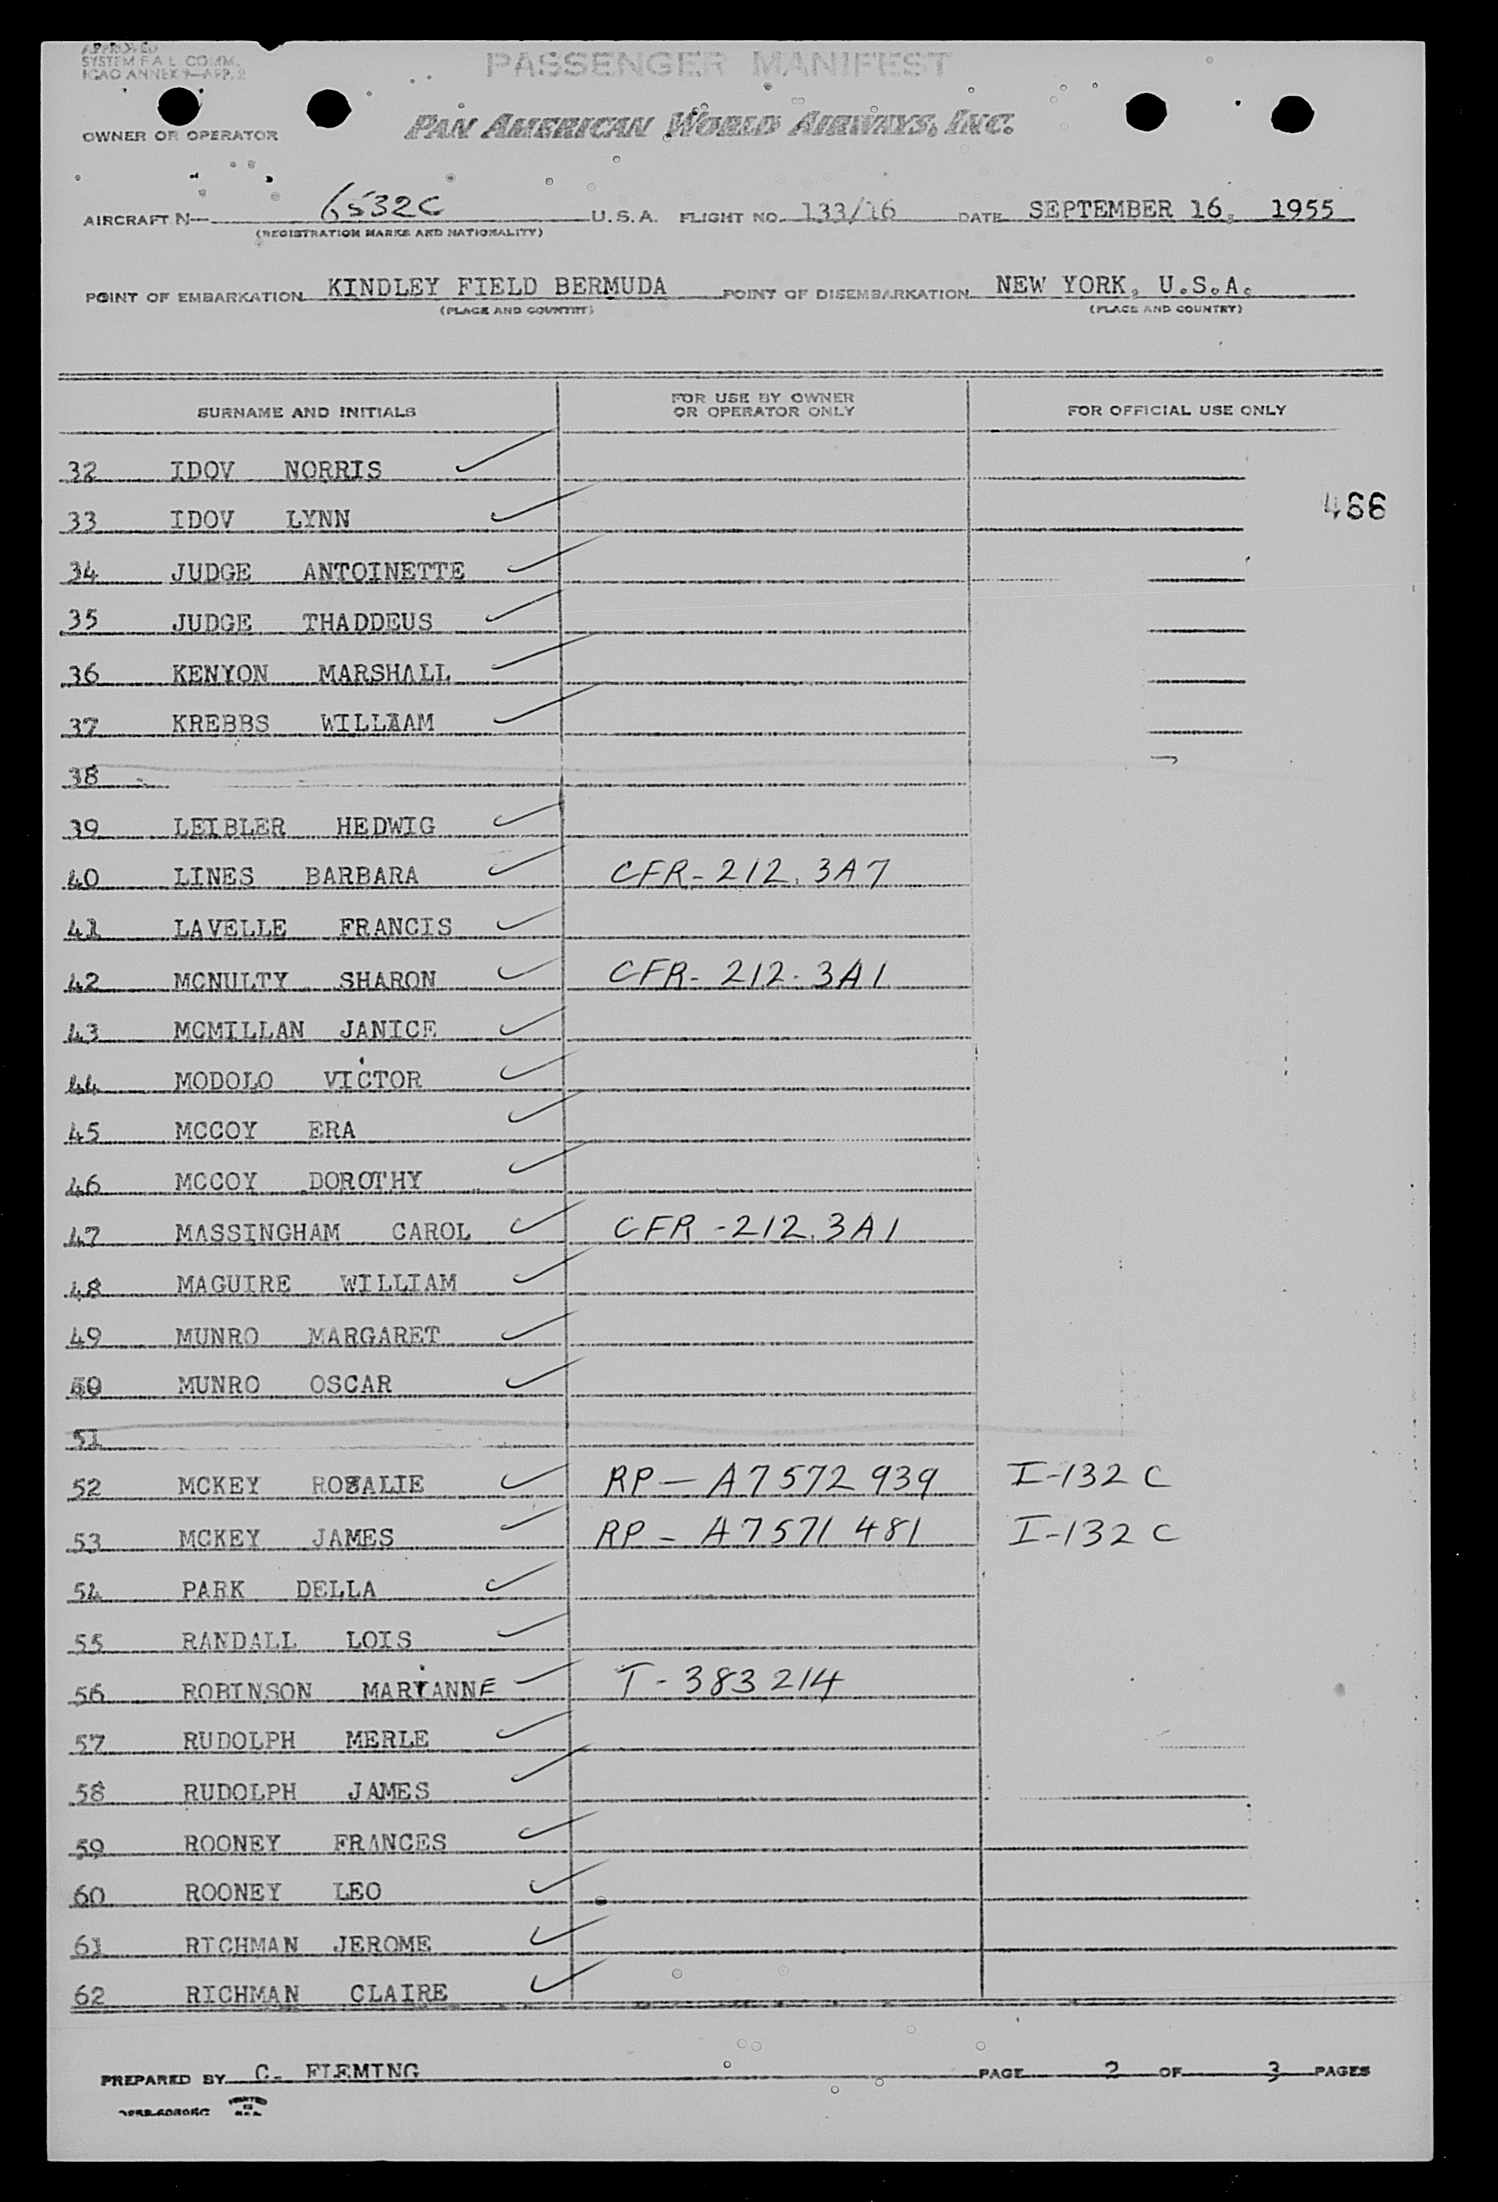 APPROVED
SYSTEM F.A.L. COMM.
ICAO ANNEX 9—APP. 2
PASSENGER MANIFEST
OWNER OR OPERATOR PAN AMERICAN WORLD AIRWAYS, INC.
AIRCRAFT N— 6532C U.S.A. FLIGHT NO. 133/16 DATE SEPTEMBER 16, 1955
(REGISTRATION MARKS AND NATIONALITY)
POINT OF EMBARKATION KINDLEY FIELD BERMUDA POINT OF DISEMBARKATION NEW YORK, U.S.A.
(PLACE AND COUNTRY) (PLACE AND COUNTRY)
SURNAME AND INITIALS FOR USE BY OWNER OR OPERATOR ONLY FOR OFFICIAL USE ONLY
32 IDOV NORRIS
466
33 IDOV LYNN
34 JUDGE ANTOINETTE
35 JUDGE THADDEUS
36 KENYON MARSHALL
37 KREBBS WILLIAM
38
39 LEIBLER HEDWIG
40 LINES BARBARA CFR-212.3A7
41 LAVELLE FRANCIS
42 MCNULTY SHARON CFR-212.3A1
43 MCMILLAN JANICE
44 MODOLO VICTOR
45 MCCOY ERA
46 MCCOY DOROTHY
47 MASSINGHAM CAROL CFR-212.3A1
48 MAGUIRE WILLIAM
49 MUNRO MARGARET
50 MUNRO OSCAR
51
52 MCKEY ROSALIE RP—A7572939 I-132C
53 MCKEY JAMES RP-A7571481 I-132C
54 PARK DELLA
55 RANDALL LOIS
56 ROBINSON MARIANNE T-383214
57 RUDOLPH MERLE
58 RUDOLPH JAMES
59 ROONEY FRANCES
60 ROONEY LEO
61 RICHMAN JEROME
62 RICHMAN CLAIRE
PREPARED BY C. FLEMING PAGE 2 OF 3 PAGES
PRINTED IN U.S.A.